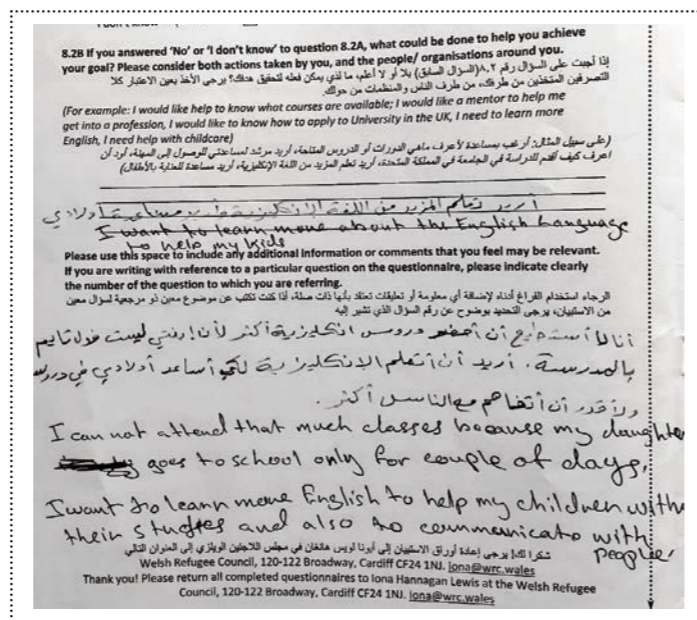 8.2B If you answered 'No' or 'I don't know' to question 8.2A, what could be done to help you achieve
your goal? Please consider both actions taken by you, and the people/ organisations around you.
إذا أجبت على السؤال رقم ٨,٢ (السؤال السابق) بلا أو لا أعلم، ما لذي يمكن فعله لتحقيق هدفك؟ يرجى الأخذ بعين الاعتبار كلا
التصرفين المتخذين من طرفك، من طرف الناس والمنظمات من حولك.
(For example: I would like help to know what courses are available; I would like a mentor to help me
get into a profession, I would like to know how to apply to University in the UK, I need to learn more
English, I need help with childcare)
(على سبيل المثال: أرغب بمساعدة لأعرف ماهي الدورات أو الدروس المتاحة، أريد مرشد لمساعدتي للوصول إلى المهنة، أرد أن
اعرف كيف أقدم للدراسة في الجامعة في المملكة المتحدة، أريد تعلم المزيد من اللغة الإنكليزية، أريد مساعدة للعناية بالأطفال)
أريد تعلم المزيد من اللغة الإنكليزية أولادي
I want to learn more about the English Language
to help my kids
Please use this space to include any additional information or comments that you feel may be relevant.
If you are writing with reference to a particular question on the questionnaire, please indicate clearly
the number of the question to which you are referring.
الرجاء استخدام الفراغ أدناه لإضافة أي معلومة أو تعليقات تعتقد بأنها ذات صلة، أذا كنت تكتب عن موضوع معين ذو مرجعية لسؤال معين
من الاستبيان، يرجى التحديد بوضوح عن رقم السؤال الذي تشير إليه
أنا لا أستطيع أن أحضر دروس انكليزية أكثر لأن إبنتي ليست فول تايم
بالمدرسة. أريد أن أتعلم الإنكليزية لكي أساعد أولادي في
ولأقدر أن أتفاهم مع الناس أكثر.
I can not attend that much classes because my daughter
goes to school only for couple of days.
I want to learn more English to help my children with
their studies and also to communicate with
people.
شكرا لك! يرجى إعادة أوراق الاستبيان إلى أيونا لويس هانغان في مجلس اللاجئين الويلزي إلى العنوان التالي
Welsh Refugee Council, 120-122 Broadway, Cardiff CF24 1NJ. Iona@wrc.wales
Thank you! Please return all completed questionnaires to Iona Hannagan Lewis at the Welsh Refugee
Council, 120-122 Broadway, Cardiff CF24 1NJ. Iona@wrc.wales